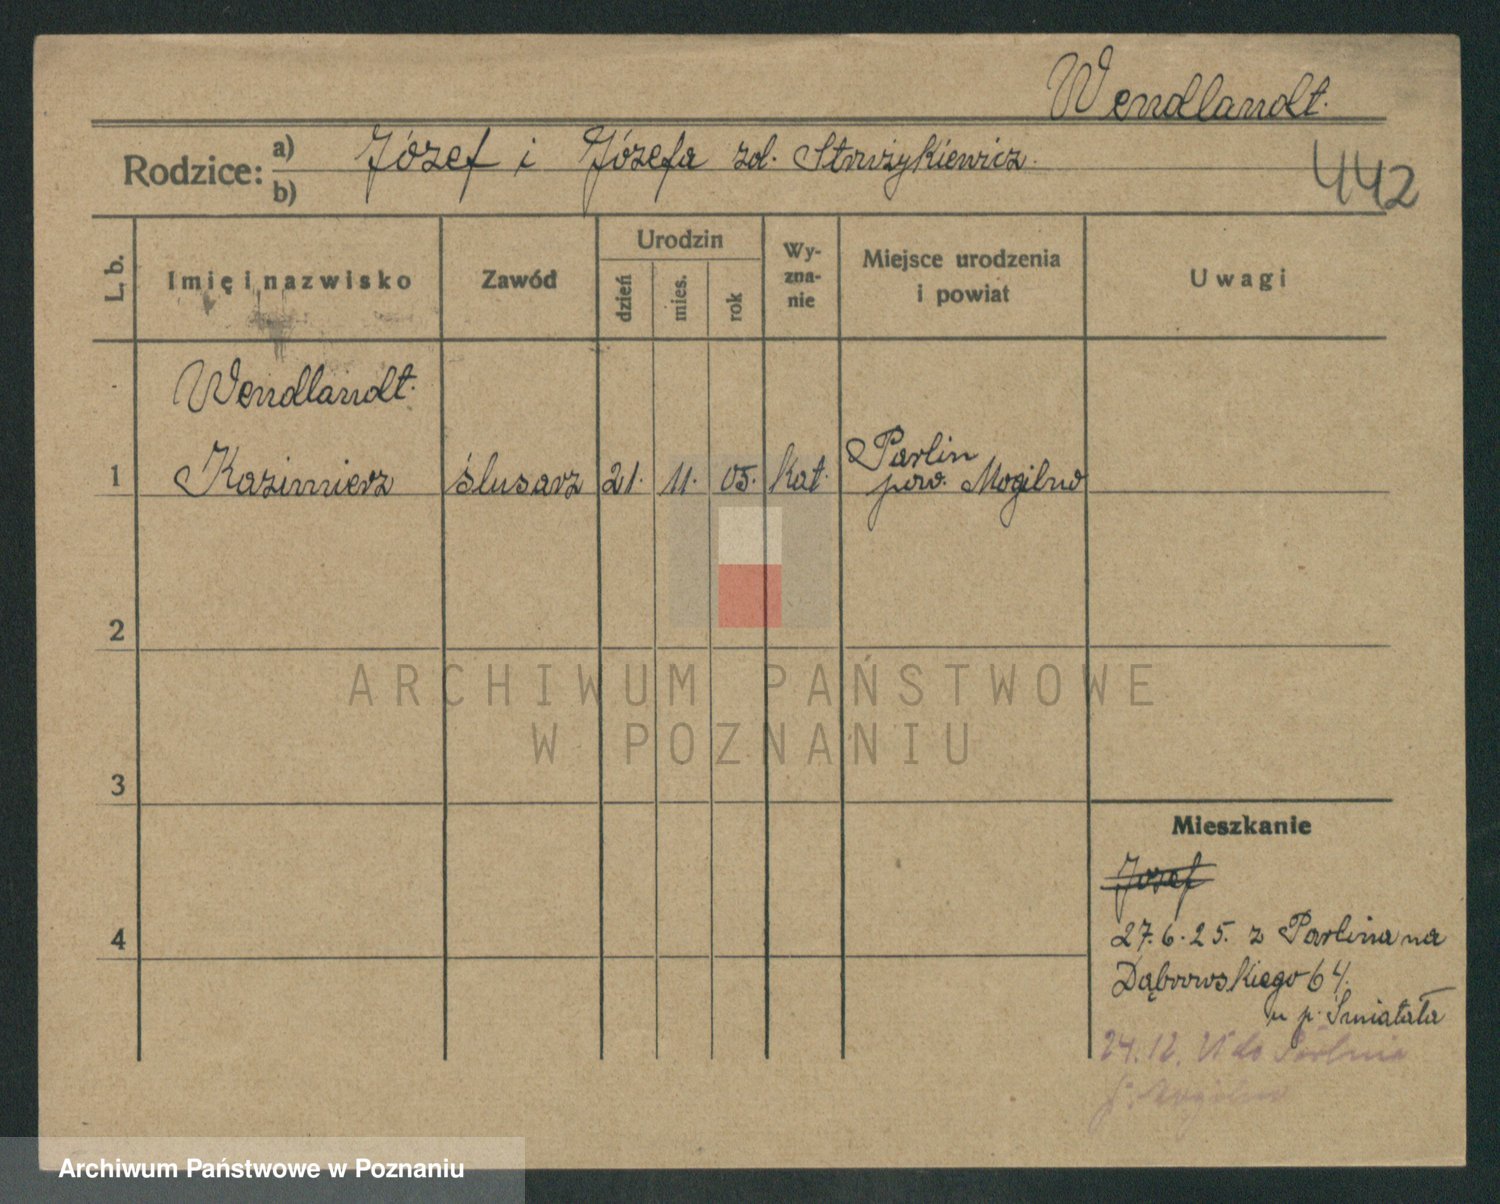 Wendlandt.
Rodzice: a) Józef i Józefa zd. Strużykiewicz.
b)
442
L. b.
Imię i nazwisko
Zawód
Urodzin
dzień
mies.
rok
Wy-
zna-
nie
Miejsce urodzenia
i powiat
Uwagi
Wendlandt.
1 Kazimierz ślusarz 21. 11. 05. kat. Parlin
pow. Mogilno
2
ARCHIWUM PAŃSTWOWE
W POZNANIU
3
Mieszkanie
Józef
4
27.6.25. z Parlina na
Dąbrowskiego 64.
u p.
24.12. do
Archiwum Państwowe w Poznaniu